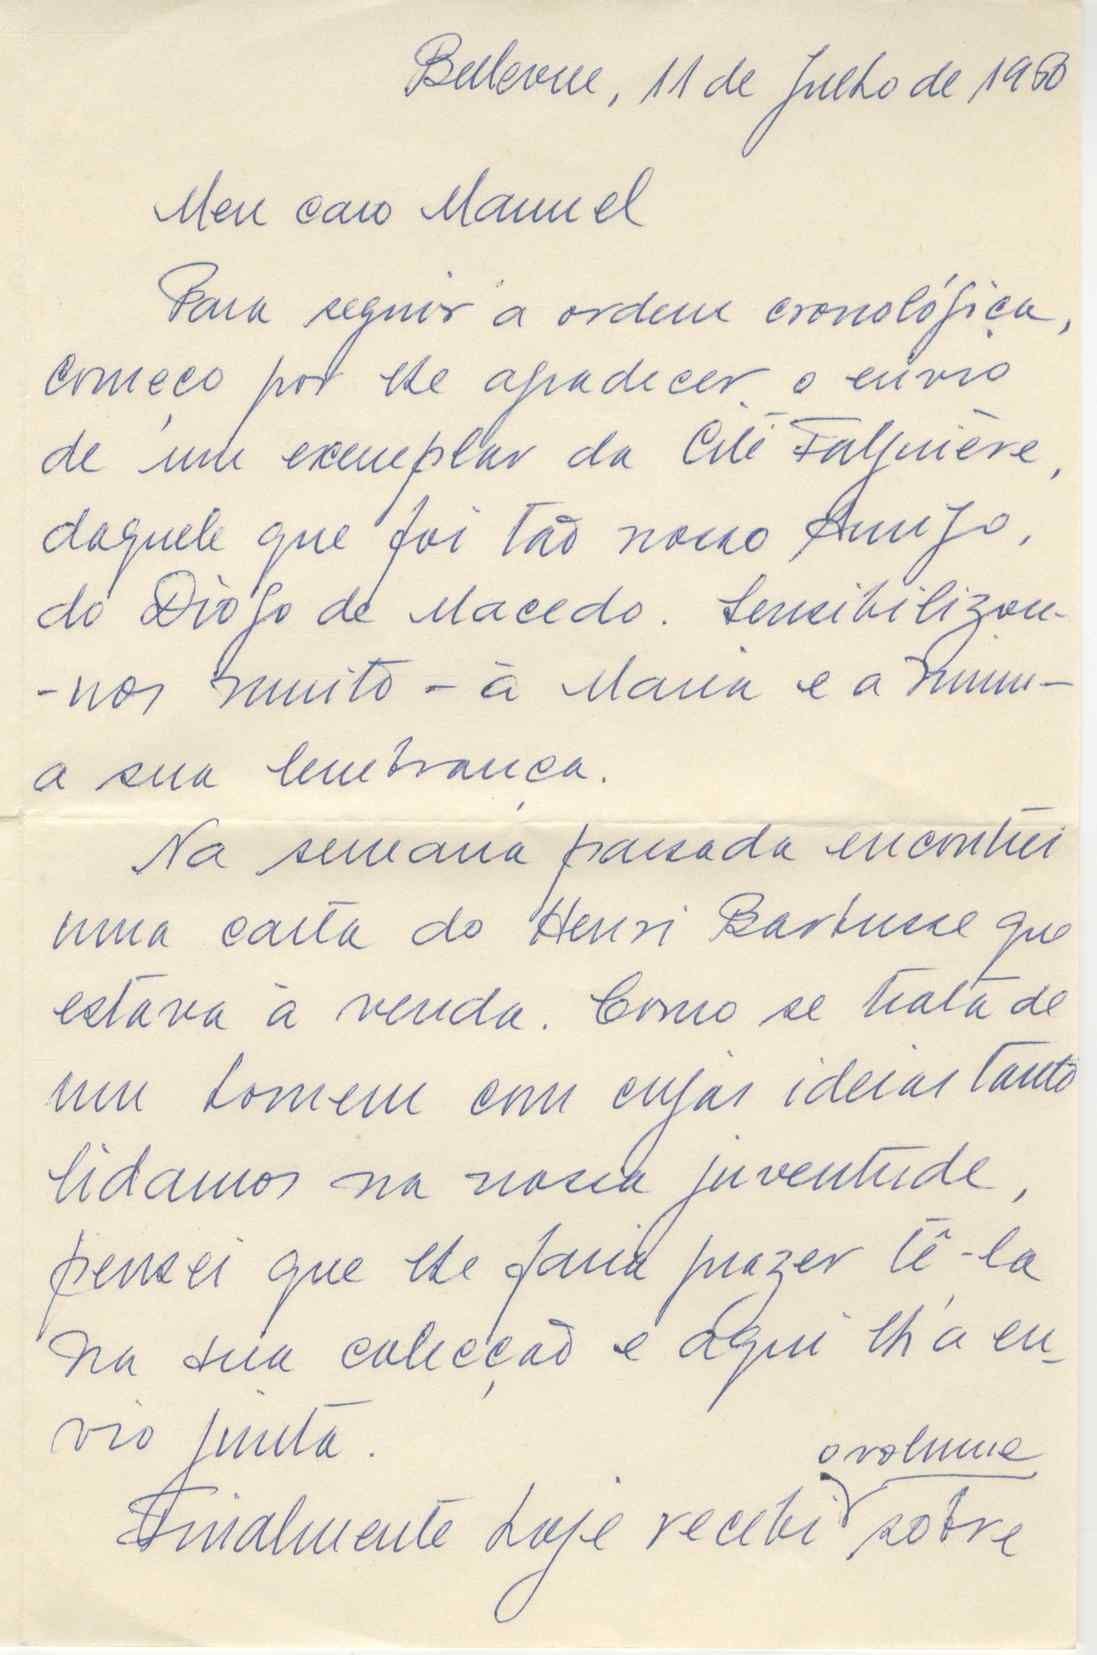 Bellevue, 11 de Julho de 1960
Meu caro Manuel
Para seguir a ordem cronológica,
começo por lhe agradecer o envio
de um exemplar da Cité Falguière,
daquele que foi tão nosso Amigo,
do Diogo de Macedo. Sensibilizou-
-nos muito - à Maria e a mim -
a sua lembrança.
Na semana passada encontrei
uma carta do Henri Barbusse que
estava à venda. Como se trata de
um homem com cujas ideias tanto
lidamos na nossa juventude,
pensei que lhe faria prazer tê-la
na sua colecção e aqui lh'a en-
vio junta.
Finalmente hoje recebi o volume sobre